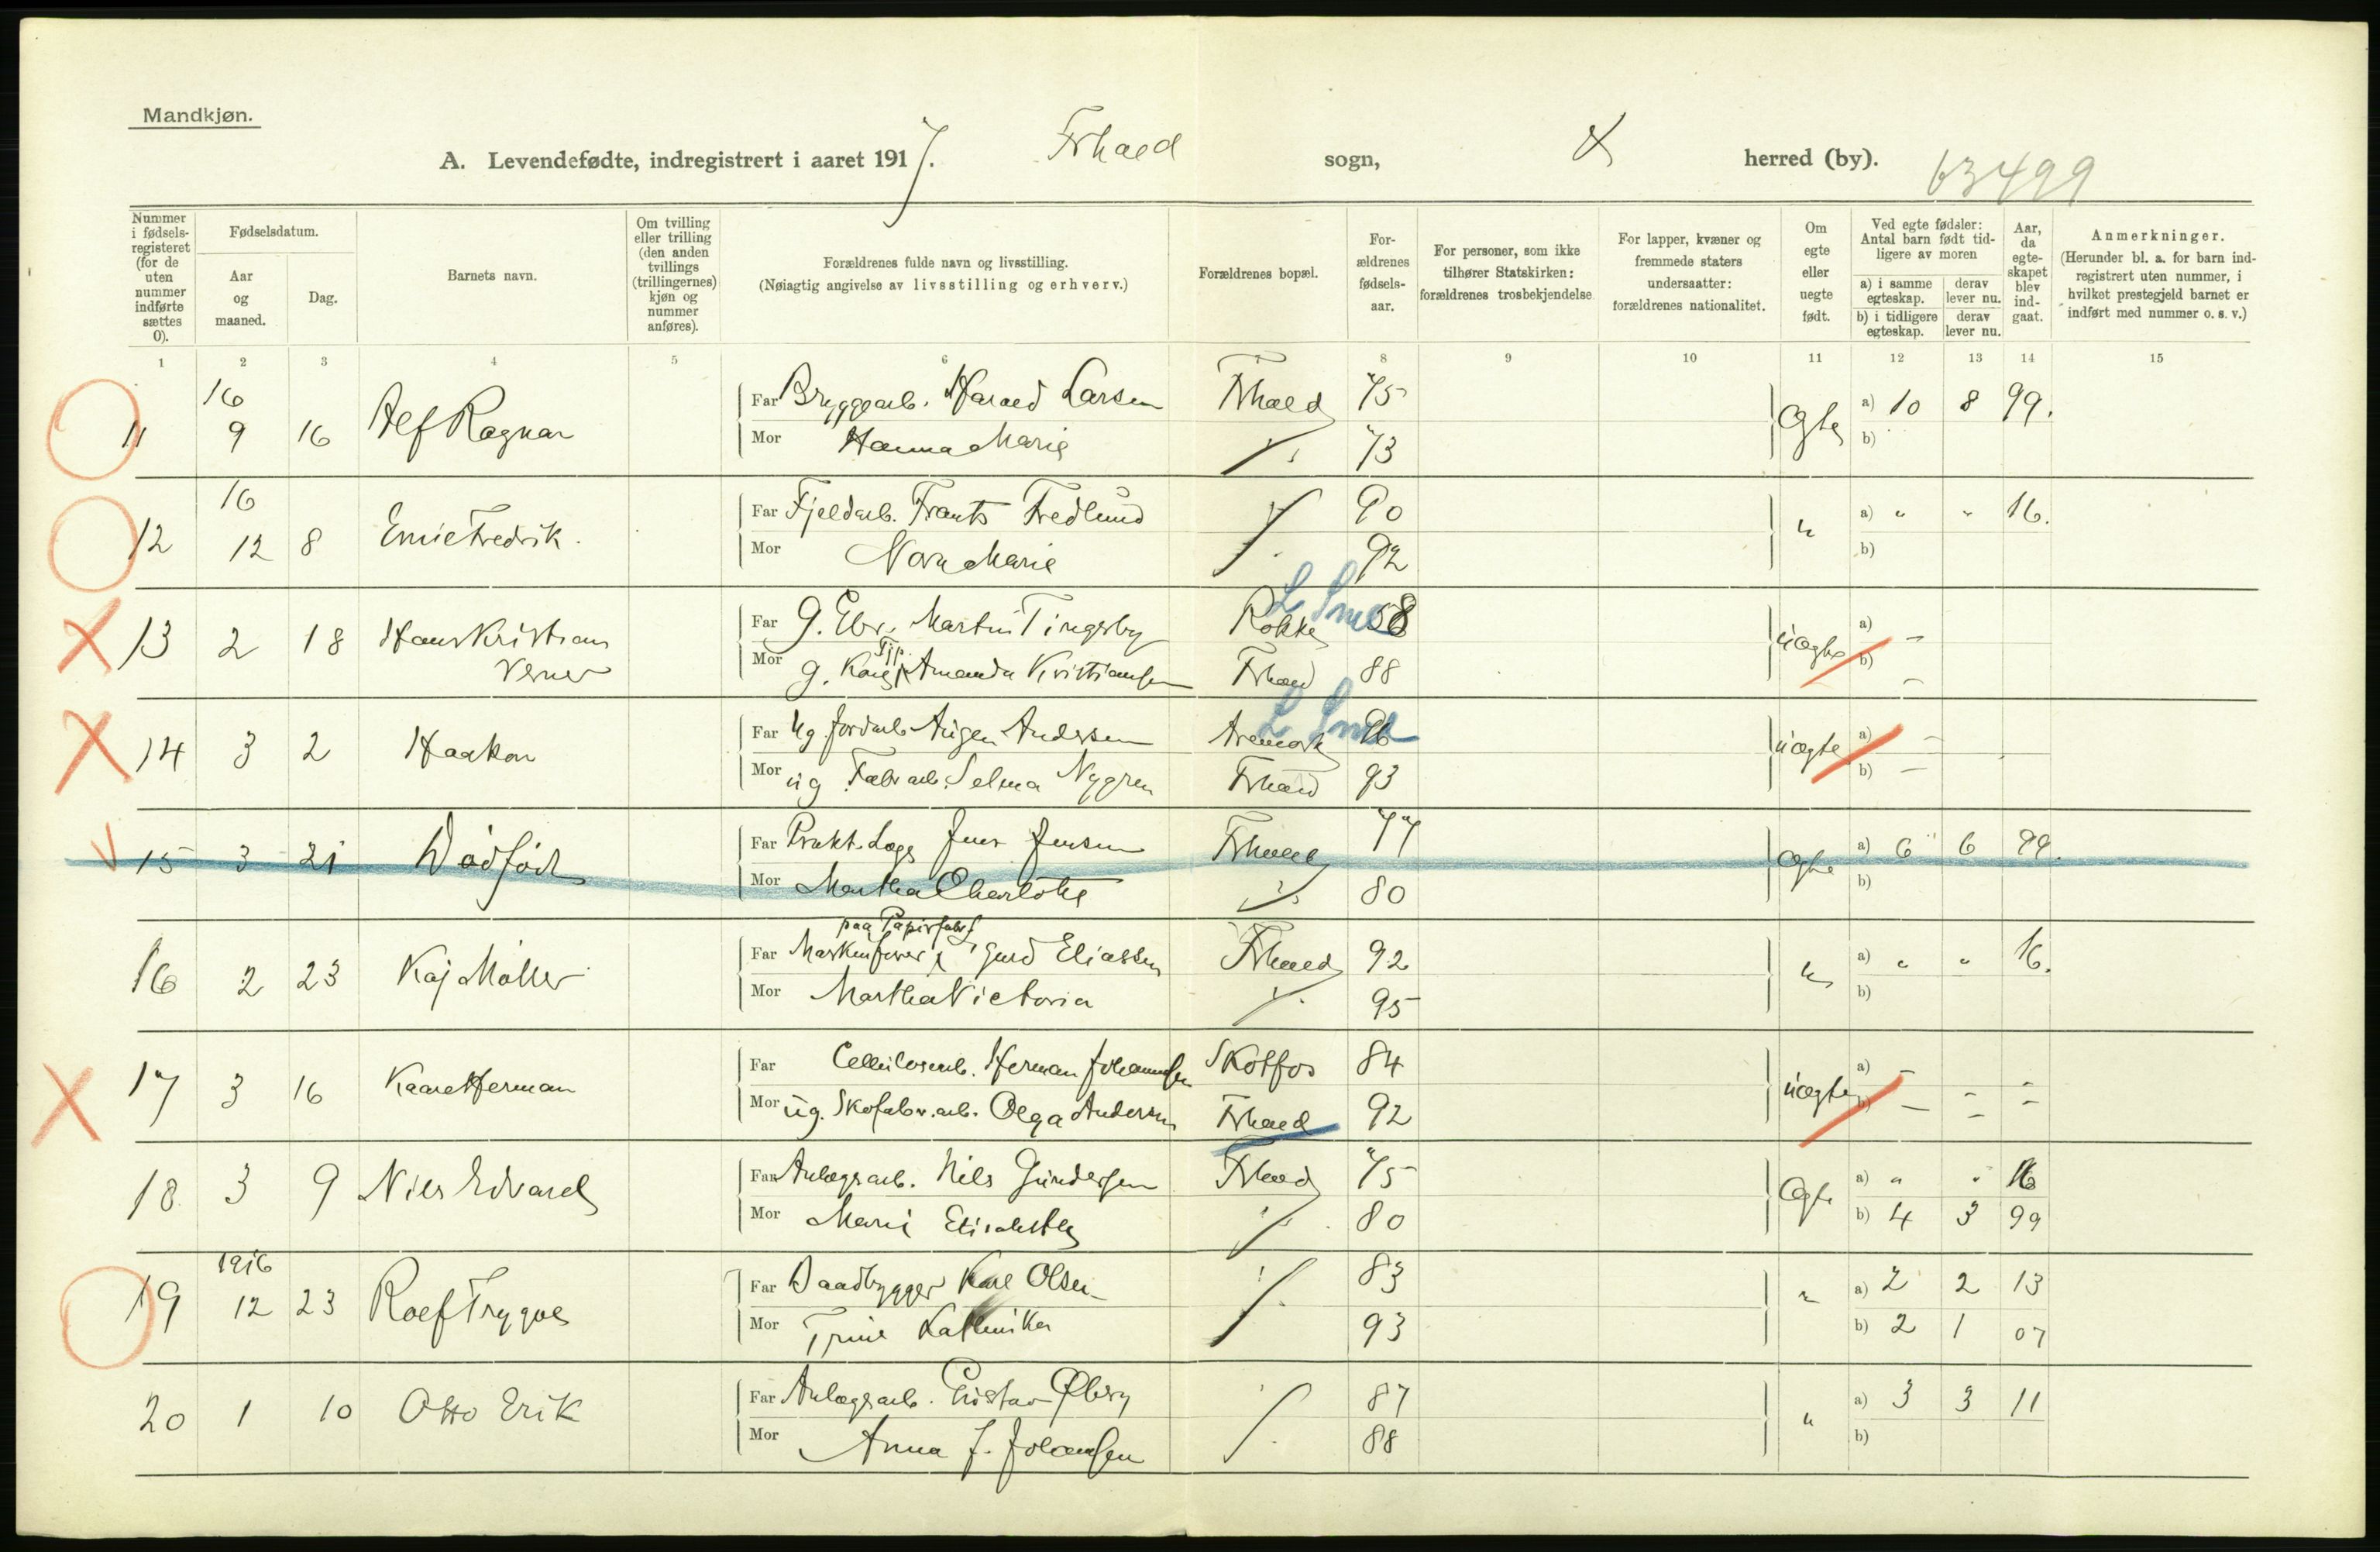 Mandkjøn.
A. Levendefødte, indregistrert i aaret 1917. Frhald sogn, herred (by). 63499
Nummer i fødsels-registeret (for de uten nummer indførte sættes 0).
Fødselsdatum.
Aar og maaned.
Dag.
Barnets navn.
Om tvilling eller trilling (den anden tvillings (trillingernes) kjøn og nummer anføres).
Forældrenes fulde navn og livsstilling.
(Nøiagtig angivelse av livsstilling og erhverv.)
Forældrenes bopæl.
For-ældrenes fødsels-aar.
For personer, som ikke tilhører Statskirken: forældrenes trosbekjendelse
For lapper, kvæner og fremmede staters undersaatter: forældrenes nationalitet.
Om egte eller uegte født.
Ved egte fødsler: Antal barn født tid-ligere av moren
a) i samme egteskap. derav lever nu.
b) i tidligere egteskap. derav lever nu.
Aar, da egte-skapet blev ind-gaat.
Anmerkninger.
(Herunder bl. a. for barn ind-registrert uten nummer, i hvilket prestegjeld barnet er indført med nummer o. s. v.)
1 2 3 4 5 6 7 8 9 10 11 12 13 14 15
16
11 9 16 Alf Ragnar Far Bryggearb. Harald Larsen Frhald 75 Ægte a) 10 8 99.
Mor Hanna Marie " 73 b)
16
12 12 8 Fredrik Far Fjeldarb. Frants Fredlund " 90 " a) " " 16.
Mor Nora Marie 92 b)
13 2 18 Hans Kristian Far G. Martin Tingsby Rokke 58 uægte a) -
Verner Mor Amanda Kristiansen Frhald 88 b) -
14 3 2 Haakon Far Ug. Jordarb. Andersen Aremark 96 uægte a) -
Mor ug. Fabr.arb. Selma Nygren Frhald 93 b) -
15 3 21 Dødfødt Far Prakt. Læge Jens Jensen Frhald 77 Ægte a) 6 6 99.
Mor Martha Charlotte " 80 b)
paa Papirfabr.
16 2 23 Kaj Møller Far Eliassen Frhald 92 " a) " " 16.
Mor Martha Victoria " 95 b)
17 3 16 Kaare Herman Far Cellulosearb. Herman Johannsen Skotfos 84 uægte a) -
Mor ug. Skofabr.arb. Olga Andersen Frhald 92 b) - - -
18 3 9 Nils Edvard Far Anlægsarb. Nils Gundersen Frhald 75 Ægte a) " " 16
Mor Marie Elisabeth " 80 b) 4 3 99
1916
19 12 23 Rolf Trygve Far Baadbygger Karl Olsen " 83 " a) 2 2 13
Mor Trine Kathinka 93 b) 2 1 07
20 1 10 Otto Erik Far Anlægsarb. Gustav Øberg " 87 " a) 3 3 11
Mor Anna J. Johansen 88 b)